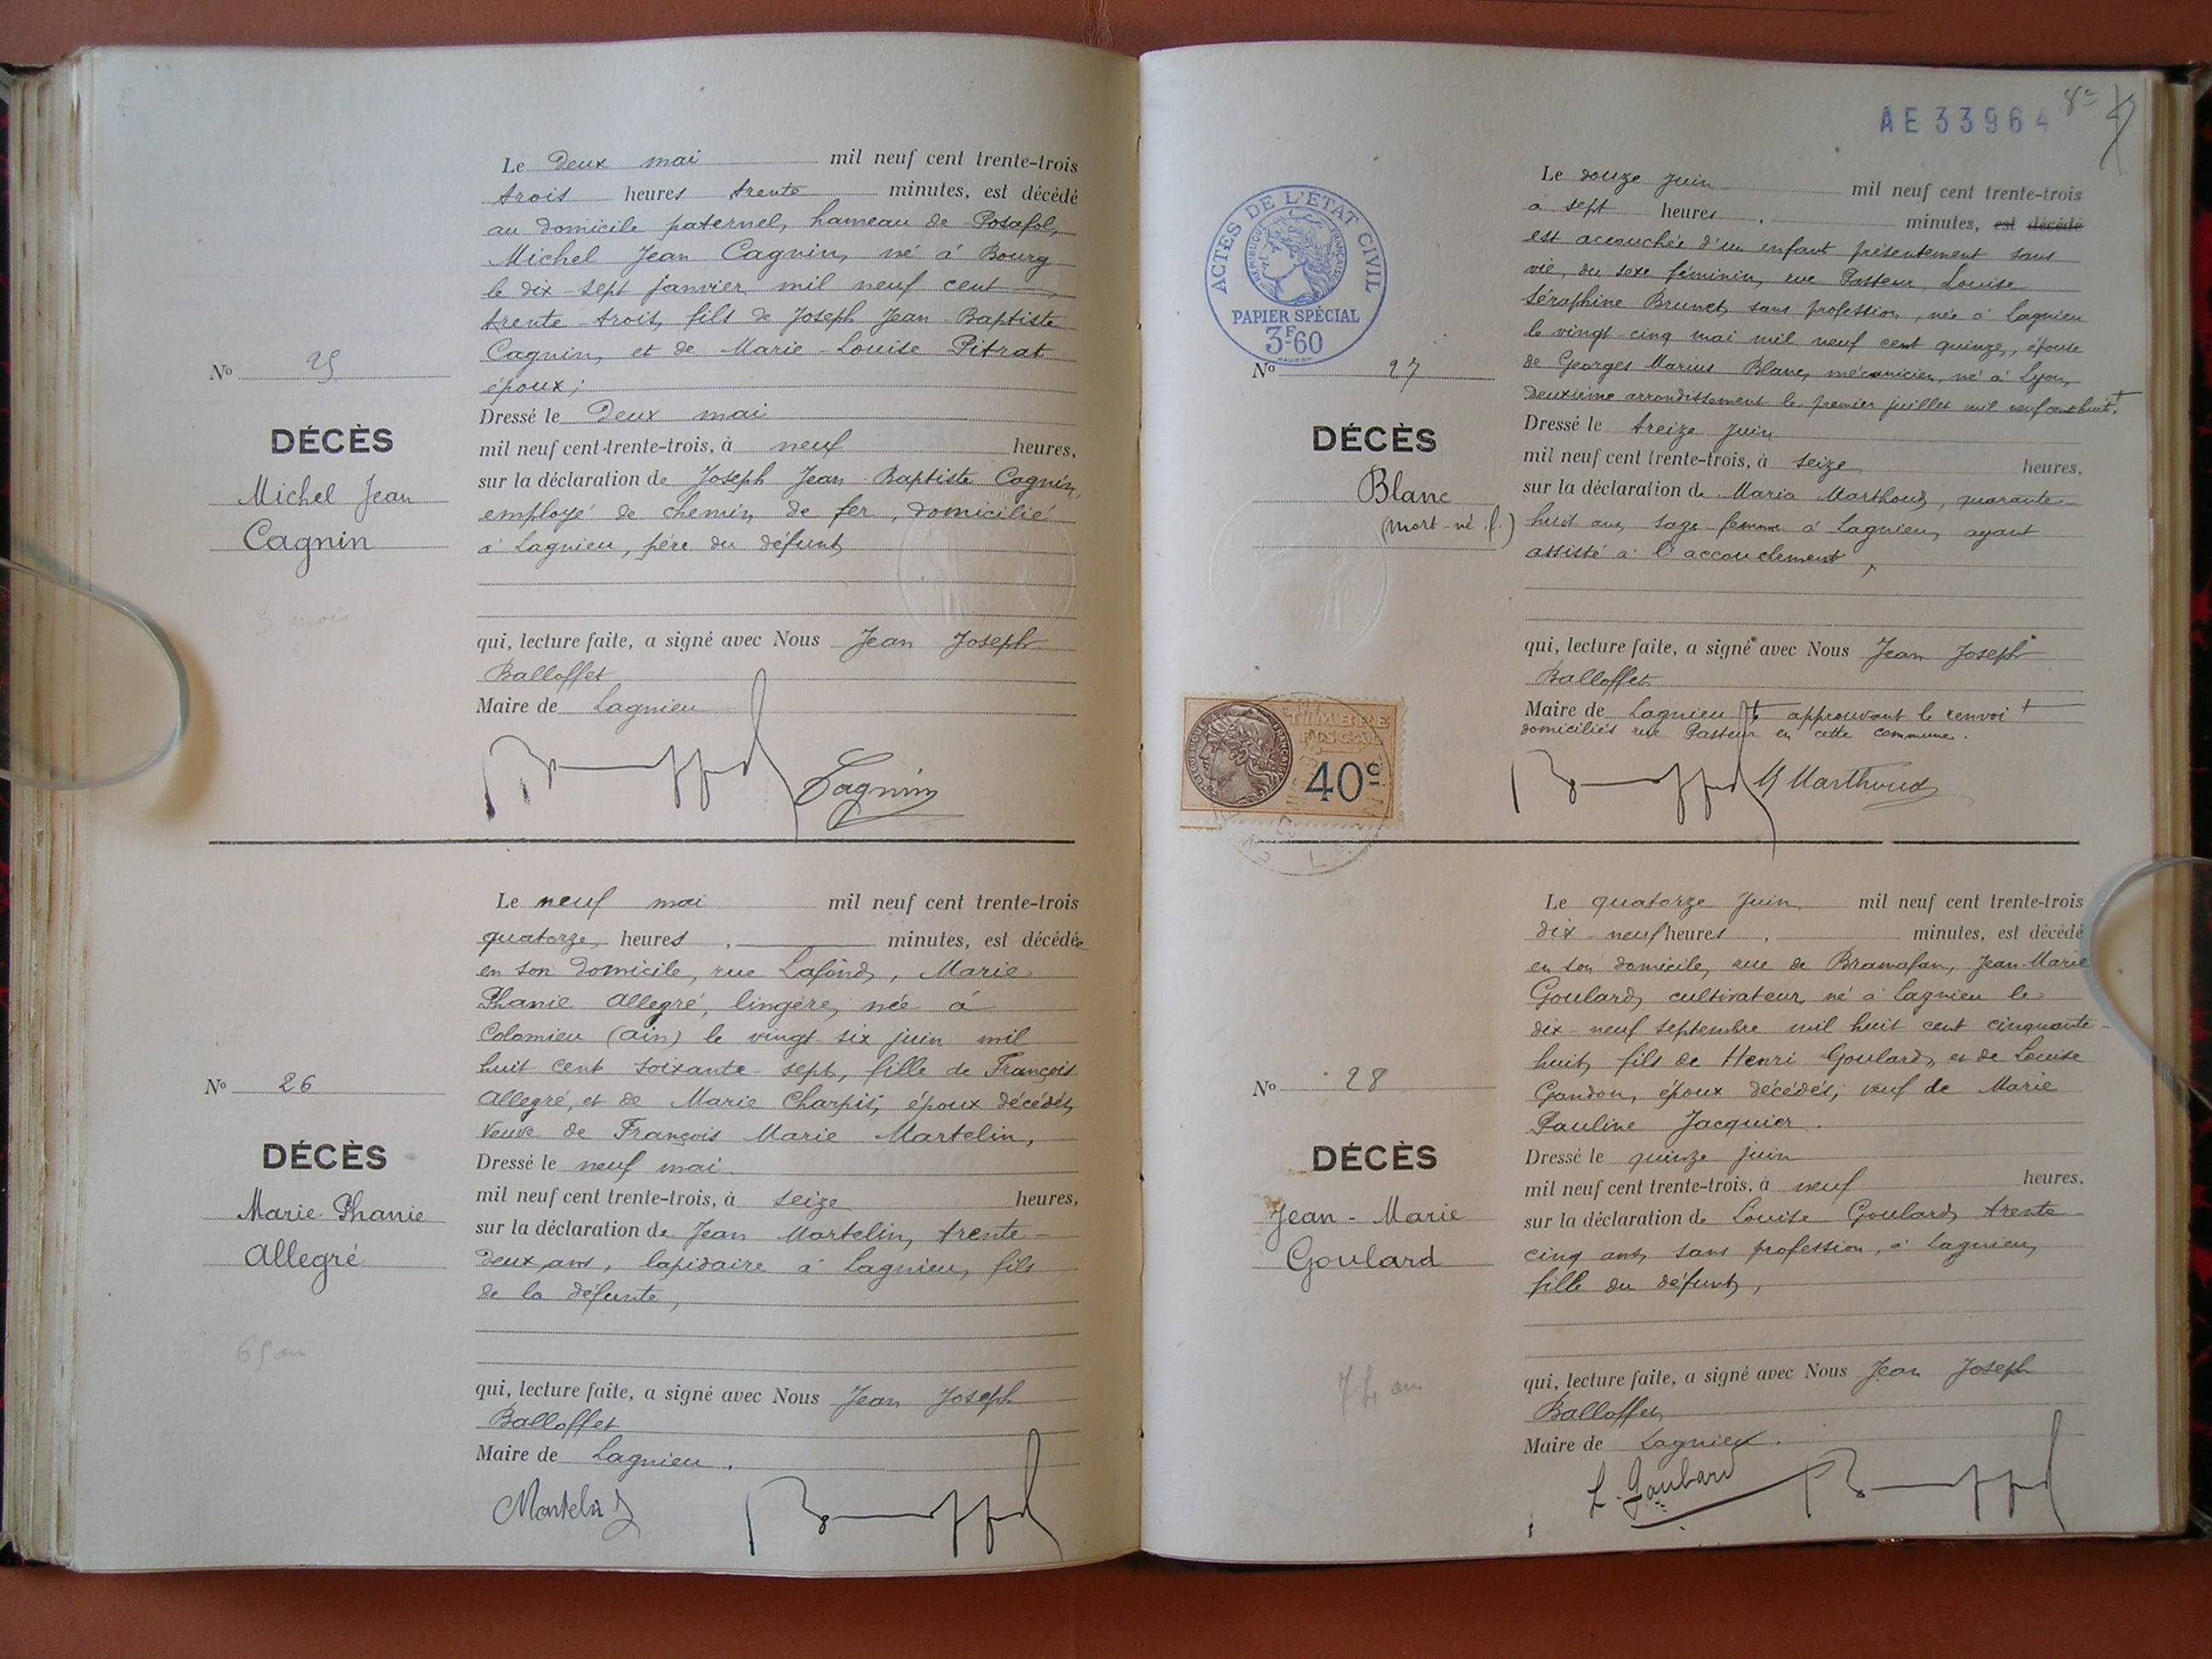 Le Deux mai mil neuf cent trente-trois
trois heures trente minutes, est décédé
au domicile paternel, hameau de Posafol,
Michel Jean Cagnin, né à Bourg
le dix-sept janvier mil neuf cent
trente-trois, fils de Joseph Jean-Baptiste
Cagnin, et de Marie-Louise Pitrat
époux;
Dressé le Deux mai
mil neuf cent-trente-trois, à neuf heures,
sur la déclaration de Joseph Jean-Baptiste Cagnin,
employé de chemin de fer, domicilié
à Lagnieu, père du défunt
qui, lecture faite, a signé avec Nous Jean Joseph
Balloffet
Maire de Lagnieu
Cagnin
No 25
DÉCÈS
Michel Jean
Cagnin
3 mois
Le neuf mai mil neuf cent trente-trois
quatorze heures, minutes, est décédée
en son domicile, rue Lafond, Marie
Phanie Allegré, lingère, née à
Colomieu (Ain) le vingt-six juin mil
huit cent soixante-sept, fille de François
Allegré, et de Marie Charpit, époux décédés,
Veuve de François Marie Martelin,
Dressé le neuf mai
mil neuf cent trente-trois, à seize heures,
sur la déclaration de Jean Martelin, trente-
deux ans, lapidaire à Lagnieu, fils
de la défunte,
qui, lecture faite, a signé avec Nous Jean Joseph
Balloffet
Maire de Lagnieu.
Martelin J
No 26
DÉCÈS
Marie Phanie
Allegré
65 ans
AE 33964
8e
ACTES DE L'ÉTAT CIVIL
RÉPUBLIQUE FRANÇAISE
PAPIER SPÉCIAL
3F60
Le douze juin mil neuf cent trente-trois
à sept heures, minutes, est décédé
est accouchée d'un enfant présentement sans
vie, du sexe féminin, rue Pasteur, Louise
Séraphine Brunet, sans profession, née à Lagnieu
le vingt-cinq mai mil neuf cent quinze, épouse
de Georges Marius Blanc, mécanicien, né à Lyon,
deuxième arrondissement le premier juillet mil neuf cent huit, +
Dressé le treize juin
mil neuf cent trente-trois, à seize heures,
sur la déclaration de Maria Marthoud, quarante-
huit ans, sage-femme à Lagnieu, ayant
assisté à l'accouchement,
qui, lecture faite, a signé avec Nous Jean Joseph
Balloffet
Maire de Lagnieu approuvant le renvoi +
domiciliés rue Pasteur en cette commune.
M Marthoud
No 27
DÉCÈS
Blanc
(mort-né f.)
TIMBRE
FISCAL
40c
Le quatorze juin mil neuf cent trente-trois
dix-neuf heures, minutes, est décédé
en son domicile, rue de Bramafan, Jean-Marie
Goulard, cultivateur, né à Lagnieu le
dix-neuf septembre mil huit cent cinquante-
huit, fils de Henri Goulard, et de Louise
Gandon, époux décédés; veuf de Marie
Pauline Jacquier.
Dressé le quinze juin
mil neuf cent trente-trois, à neuf heures,
sur la déclaration de Louise Goulard, trente
cinq ans, sans profession, à Lagnieu,
fille du défunt,
qui, lecture faite, a signé avec Nous Jean Joseph
Balloffet
Maire de Lagnieu.
L. Goulard
No 28
DÉCÈS
Jean-Marie
Goulard
74 ans